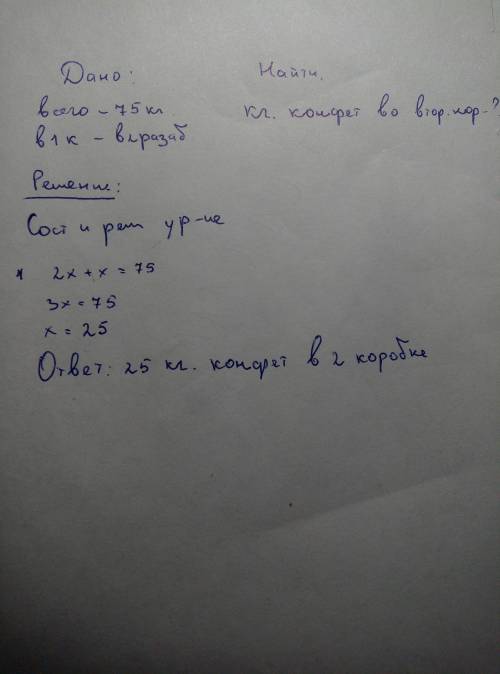 Дано: Найти.
всего - 75 кг кг. конфет во втор. кор-?
в 1 к - в 2 раза б
Решение:
Сост и реш ур-ие
2x + x = 75
3x = 75
x = 25
Ответ: 25 кг. конфет в 2 коробке